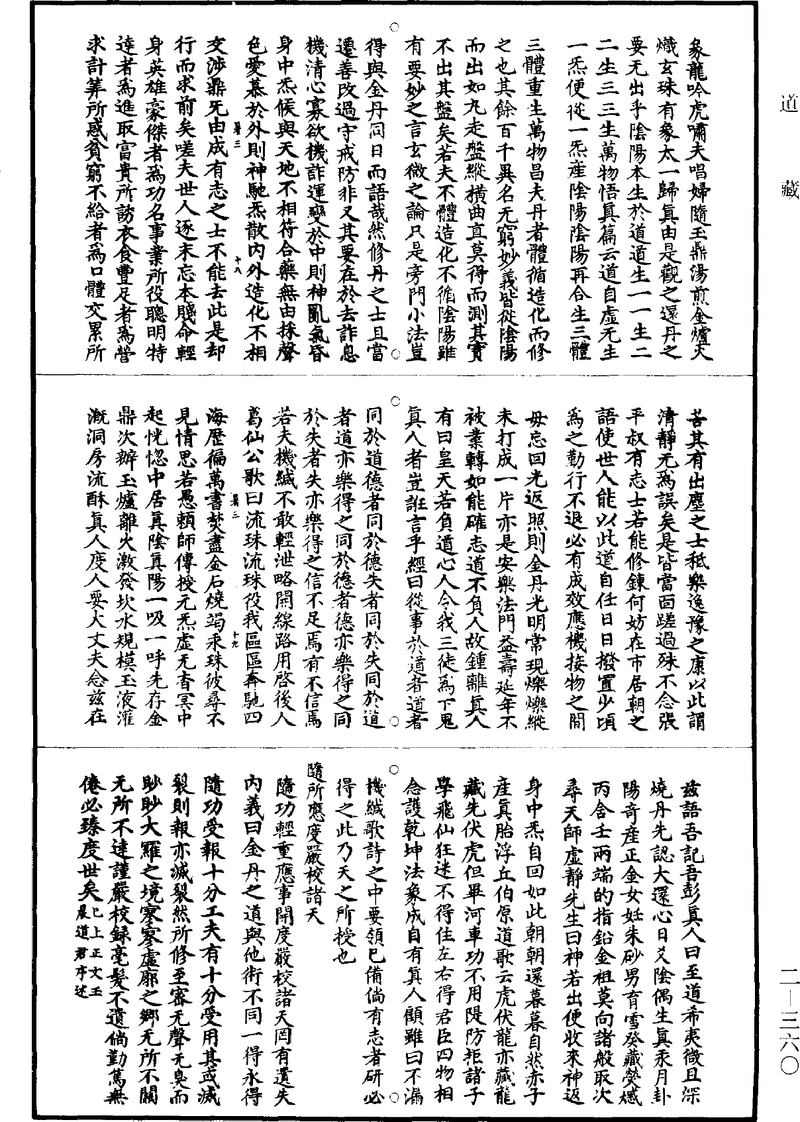 道藏
象龍吟虎嘯夫唱婦隨玉鼎湯煎金爐火
熾玄珠有象太一歸真由是觀之還丹之
要无出乎陰陽本生於道道生一一生二
二生三三生萬物悟真篇云道自虛无生
一炁便從一炁産陰陽陰陽再合生三體
三體重生萬物昌夫丹者體循造化而修
之也其餘百千異名无窮妙義皆從陰陽
而出如九走盤縱橫曲直莫得而測其實
不出其盤矣若夫不體造化不循陰陽雖
有要妙之言玄微之論只是旁門小法豈
得與金丹同日而語哉然修丹之士且當
遷善改過守戒防非又其要在於去詐息
機清心寡欲機詐運變於中則神亂氣昏
身中炁候與天地不相符合藥無由採聲
色愛慕於外則神馳炁散内外造化不相
交渉鼎旡由成有志之士不能去此是却
行而求前矣嗟夫世人逐末忘本賤命輕
身英雄豪傑者爲功名事業所役聰明特
達者爲進取富貴所誘衣食豊足者爲營
求計筭所惑貧窮不給者爲口體交累所
苦其有出塵之士秪樂逸豫之康以此謂
清靜无爲誤矣是皆當面蹉過殊不念張
平叔有志士若能修鍊何妨在市居朝之
語使世人能以此道自任日日撥置少頃
爲之勤行不退必有成效應機接物之間
毋忘回光返照則金丹光明常現爍爍縱
未打成一片亦是安樂法門益壽延年不
被業轉如能確志道不負人故鍾離真人
有曰皇天若負道心人令我三徒爲下鬼
真人者豈誑言乎經曰從事於道者道者
同於道德者同於德失者同於失同於道
者道亦樂得之同於德者德亦樂得之同
於失者失亦樂得之信不足焉有不信焉
若夫機緘不敢輕泄略開線路用啓後人
葛仙公歌曰流珠流珠役我區區奔馳四
海歷徧萬書焚盡金石燒竭汞珠彼尋不
見情思若愚賴師傳授无炁虛无杳冥中
起恍惚中居真陰真陽一吸一呼先存金
鼎次辦玉爐離火激發坎水規模玉液灌
溉洞房流酥真人度人要大丈夫念兹在
兹語吾記吾彭真人曰至道希夷微且深
燒丹先認大還心日爻陰偶生真汞月卦
陽奇産正金女妊朱砂男育雪癸藏熒熾
丙含壬兩端的指鉛金祖莫向諸般取次
尋天師虛靜先生曰神若出便收來神返
身中炁自回如此朝朝還暮暮自狀赤子
産真胎浮丘伯原道歌云虎伏龍亦藏龍
藏先伏虎但畢河車功不用隄防拒諸子
學飛仙狂迷不得住左右得君臣四物相
念護乾坤法象成自有真人顧雖曰不漏
機緘歌詩之中要領已備倘有志者研必
得之此乃天之所授也
隨所應度嚴校諸天
隨功輕重應事開度嚴校諸天罔有遺失
内義曰金丹之道與他術不同一得永得
隨功受報十分工夫有十分受用其或滅
裂則報亦滅裂然所修至審无聲无臭而
眇眇大羅之境寥寥虛廓之鄉无所不關
无所不達謹嚴校録毫髮不遺倘勤篤無
倦必臻度世矣已上正文玉晨道君序述
二—三六〇